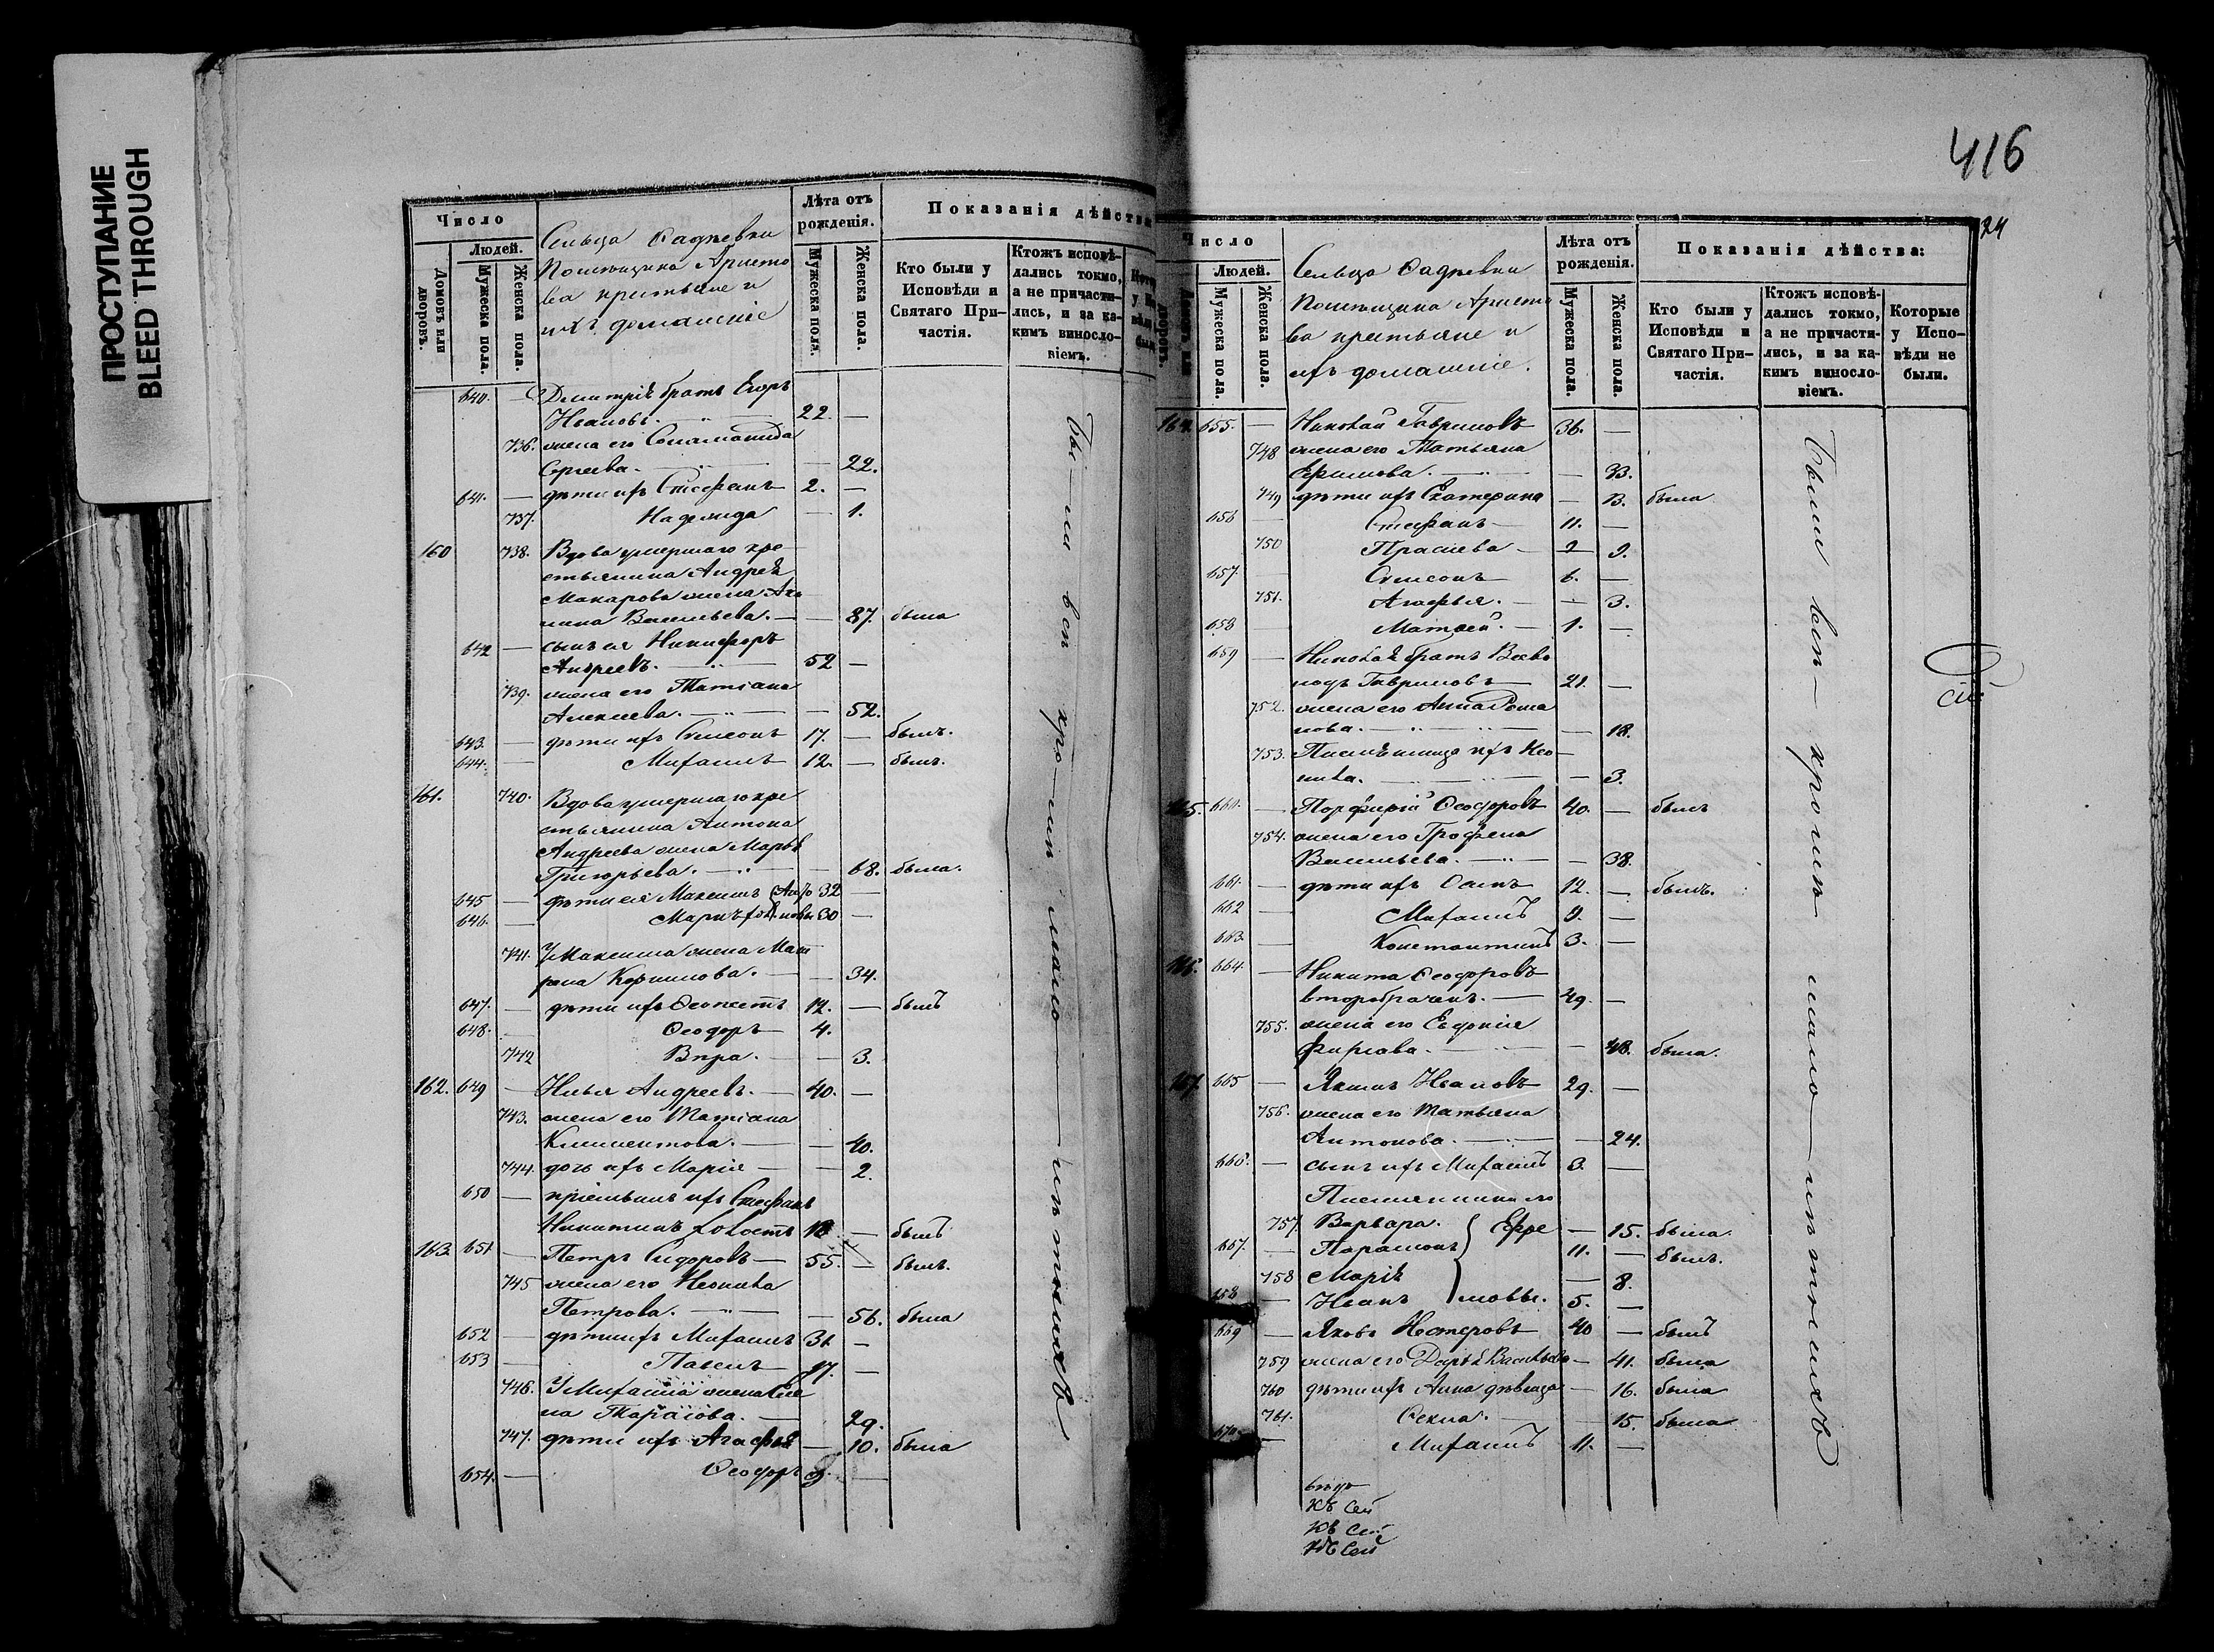 ПРОСТУПАНИЕ
BLEED THROUGH
Число
Людей.
Домовъ или дворовъ.
Мужеска пола.
Женска пола.
Сельца
Помѣщика Аристо
ва крестьяне и
ихъ домашніе
Лѣта отъ рожденія.
Мужеска пола.
Женска пола.
Показанія дѣйства
Кто были у Исповѣди и Святаго При-частія.
Ктожъ исповѣ-дались токмо, а не причасти-лись, и за ка-кимъ винословіемъ.
640. — Димитрія братъ Егоръ
Ивановъ. — 22. —
736. жена его Соломонида
Сергеева. — — 22.
641. — дѣти ихъ Стефанъ 2. —
737. Надежда — 1.
160 738. Вдова умершаго кре
стьянина Андрея
Макарова жена Аку
лина Васильева. — — 87. была
642 — сынъ ея Никифоръ
Андреевъ. — 52 —
739. жена его Татіана
Алексеева. — — 52.
643. — дѣти ихъ Симеонъ 17. — былъ.
644. — Михаилъ 12. — былъ.
161. 740. Вдова умершаго кре
стьянина Антона
Андреева жена Марья
Григорьева. — — 68. была.
645 — дѣти ея Максимъ 32 —
646. — 30 —
741. У Максима жена Мат
рона Корнилова. — — 34.
647. — дѣти ихъ 12. — былъ
648. — Ѳеодоръ 4.
742 Вѣра. — — 3.
162. 649 — Илья Андреевъ. — 40. —
743. жена его Татіана
Климентова. — — 40.
744. дочь ихъ Марія — — 2.
650 — пріемышъ ихъ Стефанъ
Никитинъ холостъ 18 — былъ
163. 651 — Петръ Сидоровъ — 55. — былъ.
745 жена его Неонила
Петрова. — — 56. была
652 — дѣти ихъ Михаилъ 31 —
653 — Павелъ 17. —
746. У Михаила жена Еле
на Тарасова. — 29.
747. дѣти ихъ Агафья — 10. была
654. — Ѳеодоръ 9. —
Бы — ли всѣ кро — мѣ мало — лѣтнихъ
416
24
Число
Людей.
Мужеска пола.
Женска пола.
Сельца
Помѣщика Аристо
ва крестьяне и
ихъ домашніе.
Лѣта отъ рожденія.
Мужеска пола.
Женска пола.
Показанія дѣйства:
Кто были у Исповѣди и Святаго При-частія.
Ктожъ исповѣ-дались токмо, а не причасти-лись, и за ка-кимъ винословіемъ.
Которые у Испо-вѣди не были.
164. 655. — Николай Гавриловъ 36. —
748 жена его Татьяна
Ефимова. — — 33.
749 дѣти ихъ Екатерина — 13. была
656 — Стефанъ — 11. —
750 — 9.
657. — Симеонъ 6. —
751. Агафья. — — 3.
658 — Матвей. — 1. —
659 — Николая братъ Всево
лодъ Гавриловъ — 21. —
752. жена его Анна Рома
нова. — — 18.
753. Племѣнница ихъ Нео
нила. — — 3.
165. 660. — Порфирій Ѳеодоровъ 40. — былъ
754. жена его
Васильева. — — 38.
661. — дѣти ихъ Осипъ 12. — былъ.
662 — Михаилъ 9. —
663. — Константинъ 3. —
166. 664. — Никита Ѳеодоровъ
второбраченъ. — 49. —
755. жена его Евдокія
Фирсова. — — 48. была.
167. 665 — Якимъ Ивановъ 29. —
756. жена его Татьяна
Антонова. — — 24.
666. — сынъ ихъ Михаилъ 3. —
Племянники его
757. Варвара. } Ефре — 15. была.
667. — Парамонъ 11. — былъ.
758 Марія — 8.
668 — Иванъ } мовы. 5. —
669 — Яковъ Нестеровъ 40 — былъ
759 жена его Дарья Васильева — 41. была
760 дѣти ихъ Анна дѣвица — 16. была
761. Ѳекла. — 15. была
670. — Михаилъ 11. —
Были всѣ — кромѣ мало — лѣтнихъ